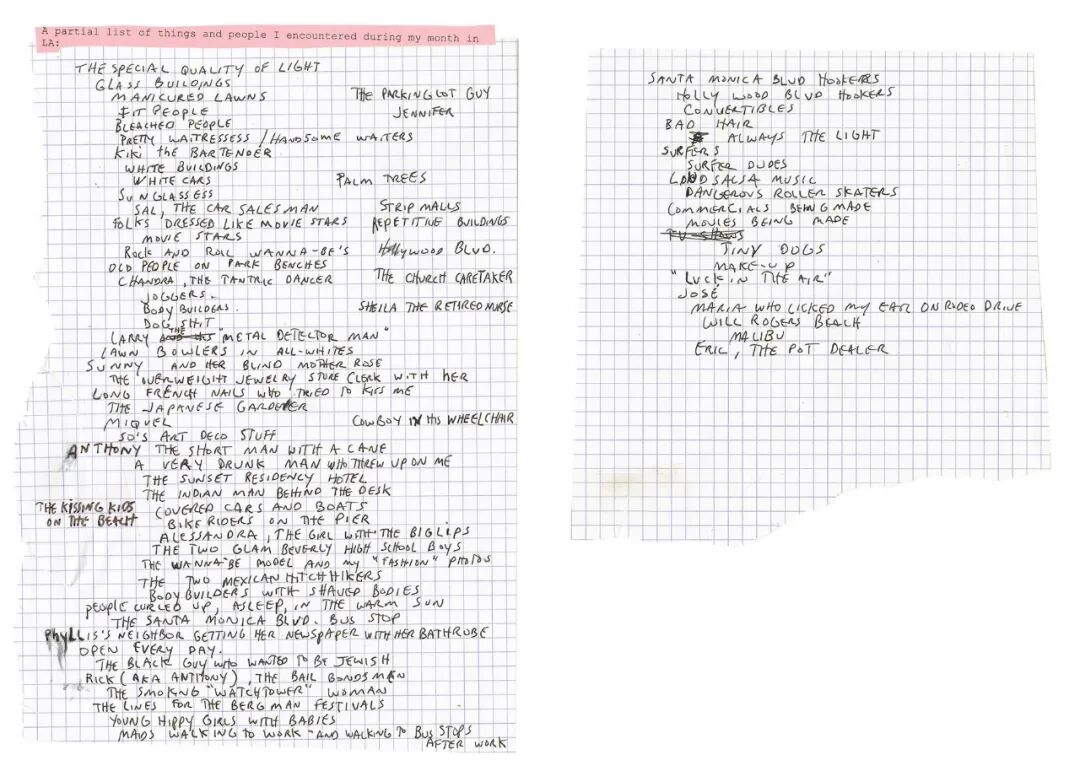 A partial list of things and people I encountered during my month in
LA:
THE SPECIAL QUALITY OF LIGHT
GLASS BUILDINGS
MANICURED LAWNS THE PARKING LOT GUY
FIT PEOPLE JENNIFER
BLEACHED PEOPLE
PRETTY WAITRESSESS / HANDSOME WAITERS
KIKI the BARTENDER
WHITE BUILDINGS
WHITE CARS PALM TREES
SUNGLASSESS
SAL, THE CAR SALESMAN STRIP MALLS
FOLKS DRESSED LIKE MOVIE STARS REPETITIVE BUILDINGS
MOVIE STARS
ROCK AND ROLL WANNA-BE'S HOLLYWOOD BLVD.
OLD PEOPLE ON PARK BENCHES
CHANDRA, THE TANTRIC DANCER THE CHURCH CARETAKER
JOGGERS.
BODY BUILDERS. SHEILA THE RETIRED NURSE
DOG SHIT
LARRY THE "METAL DETECTOR MAN"
LAWN BOWLERS IN ALL-WHITES
SUNNY AND HER BLIND MOTHER ROSE
THE OVERWEIGHT JEWELRY STORE CLERK WITH HER
LONG FRENCH NAILS WHO TRIED TO KISS ME
THE JAPANESE GARDENER
MIQUEL COWBOY IN HIS WHEELCHAIR
50'S ART DECO STUFF
ANTHONY THE SHORT MAN WITH A CANE
A VERY DRUNK MAN WHO THREW UP ON ME
THE SUNSET RESIDENCY HOTEL
THE INDIAN MAN BEHIND THE DESK
THE KISSING KIDS COVERED CARS AND BOATS
ON THE BEACH BIKE RIDERS ON THE PIER
ALESSANDRA, THE GIRL WITH THE BIG LIPS
THE TWO GLAM BEVERLY HIGH SCHOOL BOYS
THE WANNA BE MODEL AND MY "FASHION" PHOTOS
THE TWO MEXICAN HITCHHIKERS
BODYBUILDERS WITH SHAVED BODIES
PEOPLE CURLED UP, ASLEEP, IN THE WARM SUN
THE SANTA MONICA BLVD. BUS STOP
PHYLLIS'S NEIGHBOR GETTING HER NEWSPAPER WITH HER BATHROBE
OPEN EVERY DAY.
THE BLACK GUY WHO WANTED TO BE JEWISH
RICK (AKA ANTHONY), THE BAIL BONDSMAN
THE SMOKING "WATCHTOWER" WOMAN
THE LINES FOR THE BERGMAN FESTIVALS
YOUNG HIPPY GIRLS WITH BABIES
MAIDS WALKING TO WORK - AND WALKING TO BUS STOPS
AFTER WORK
SANTA MONICA BLVD HOOKERS
HOLLY WOOD BLVD HOOKERS
CONVERTIBLES
BAD HAIR
ALWAYS THE LIGHT
SURFERS
SURFER DUDES
LOUD SALSA MUSIC
DANGEROUS ROLLER SKATERS
COMMERCIALS BEING MADE
MOVIES BEING MADE
TV SHOWS
TINY DOGS
MAKE-UP
"LUCK IN THE AIR"
JOSÉ
MARIA WHO LICKED MY EAR ON RODEO DRIVE
WILL ROGERS BEACH
MALIBU
ERIC, THE POT DEALER